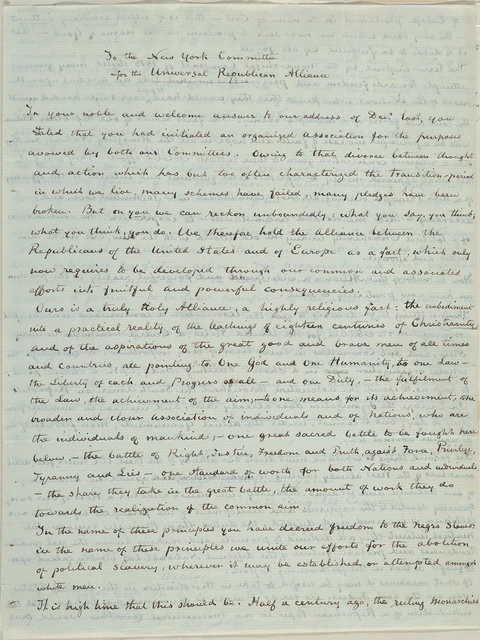 To the New York Committee
for the Universal Republican Alliance
In your noble and welcome answer to our address of Decr last, you
stated that you had initiated an organized association for the purpose
avowed by both our Committees. Owing to that divorce between thought
and action which has but too often characterized the transition-period
in which we live, many schemes have failed, many pledges have been
broken. But on you we can reckon unboundedly; what you say, you think;
what you think, you do. We therefore hold the Alliance between the
Republicans of the United States and of Europe as a fact, which only
now requires to be developed through our common and associated
efforts into fruitful and powerful consequences.
Ours is a truly Holy Alliance, a highly religious fact: the embodiment
into a practical reality of the teachings of eighteen centuries of Christianity
and of the aspirations of the great good and brave men of all times
and countries, all pointing to One God and One Humanity, to one law—
the Liberty of each and Progress of all — and one Duty — the fulfilment of
the Law, the achievement of the aim; — to one means for its achievement, the
broader and closer association of individuals and of Nations, who are
the individuals of mankind; — one great sacred battle to be fought here
below, — the battle of Right, Justice, Freedom and Truth against Force, Privilege,
Tyranny and Lies — one standard of worth for both Nations and individuals,
— the share they take in the great battle, the amount of work they do
towards the realization of the common aim.
In the name of these principles you have decreed freedom to the Negro Slaves:
in the name of these principles we unite our efforts for the abolition
of political slavery, wherever it may be established or attempted amongst
white men.
It is high time that this should be. Half a century ago, the ruling Monarchies